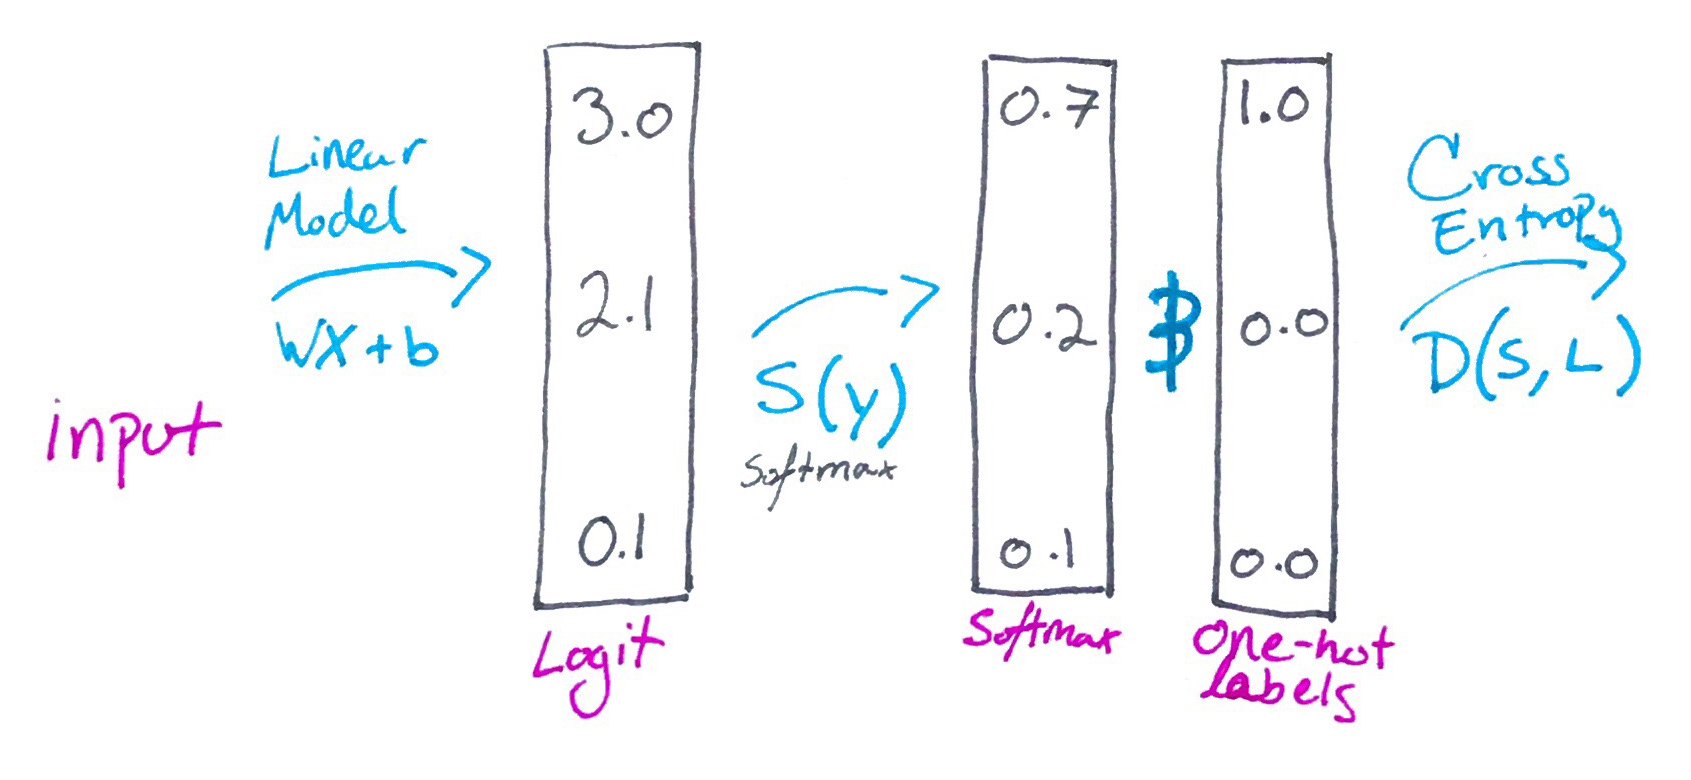 input
Linear
Model
WX+b
3.0
2.1
0.1
Logit
S(y)
Softmax
0.7
0.2
0.1
Softmax
1.0
0.0
0.0
One-hot
Labels
Cross
Entropy
D(S,L)